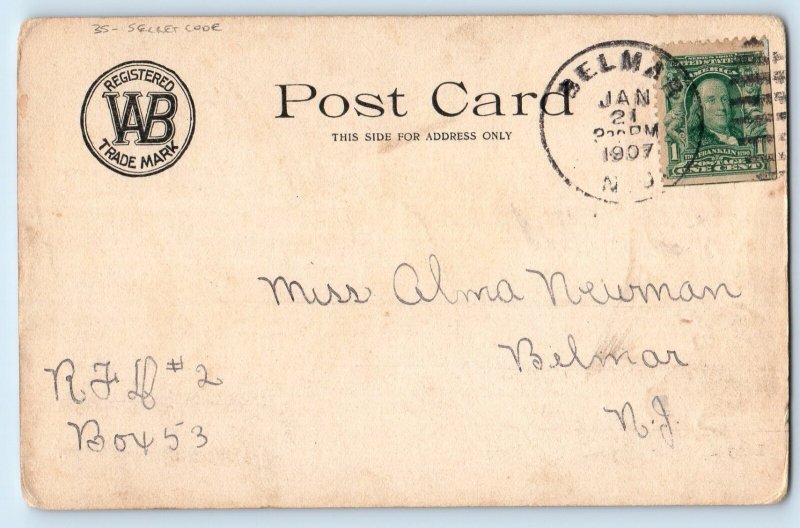 35- SECRET CODE
REGISTERED
WAB
TRADE MARK
Post Card
THIS SIDE FOR ADDRESS ONLY
BELMAR
JAN
21
PM
1907
N.J.
AMERICA
1
FRANKLIN
POSTAGE
ONE CENT
Miss Alma Newman
Belmar
N.J.
R F D #2
Box 53